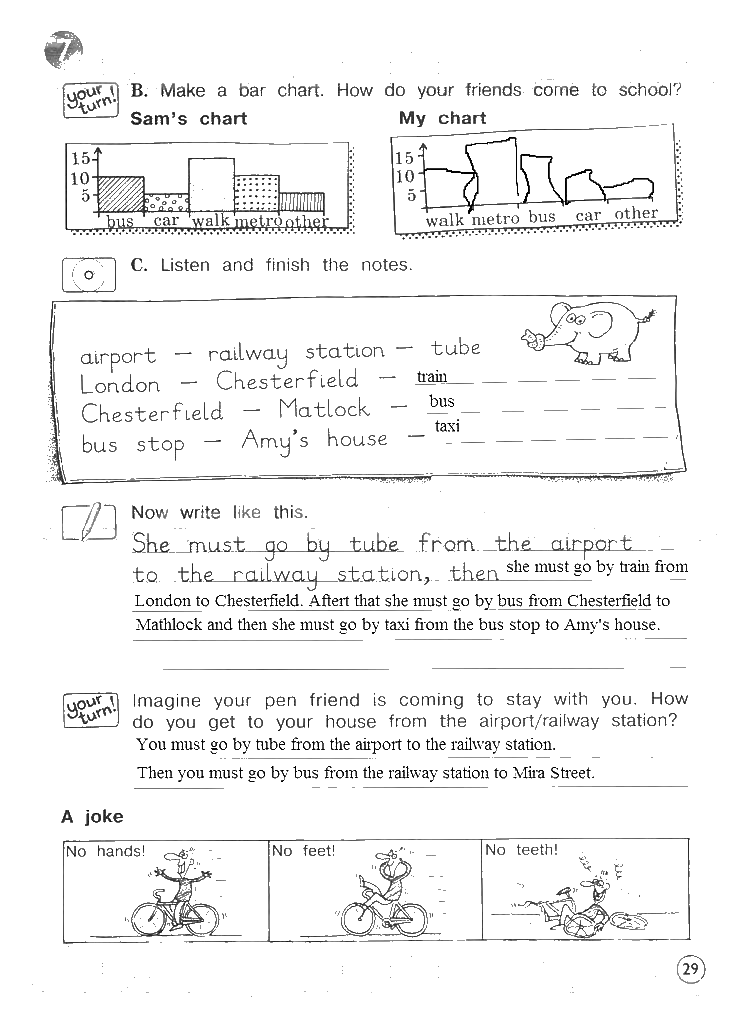 7
your turn!
B. Make a bar chart. How do your friends come to school?
Sam's chart
My chart
15
10
5
bus car walk metro other
15
10
5
walk metro bus car other
C. Listen and finish the notes.
airport – railway station – tube
London – Chesterfield – train
Chesterfield – Matlock – bus
bus stop – Amy's house – taxi
Now write like this.
She must go by tube from the airport
to the railway station, then she must go by train from
London to Chesterfield. Aftert that she must go by bus from Chesterfield to
Mathlock and then she must go by taxi from the bus stop to Amy's house.
your turn!
Imagine your pen friend is coming to stay with you. How
do you get to your house from the airport/railway station?
You must go by tube from the airport to the railway station.
Then you must go by bus from the railway station to Mira Street.
A joke
No hands!
No feet!
No teeth!
29